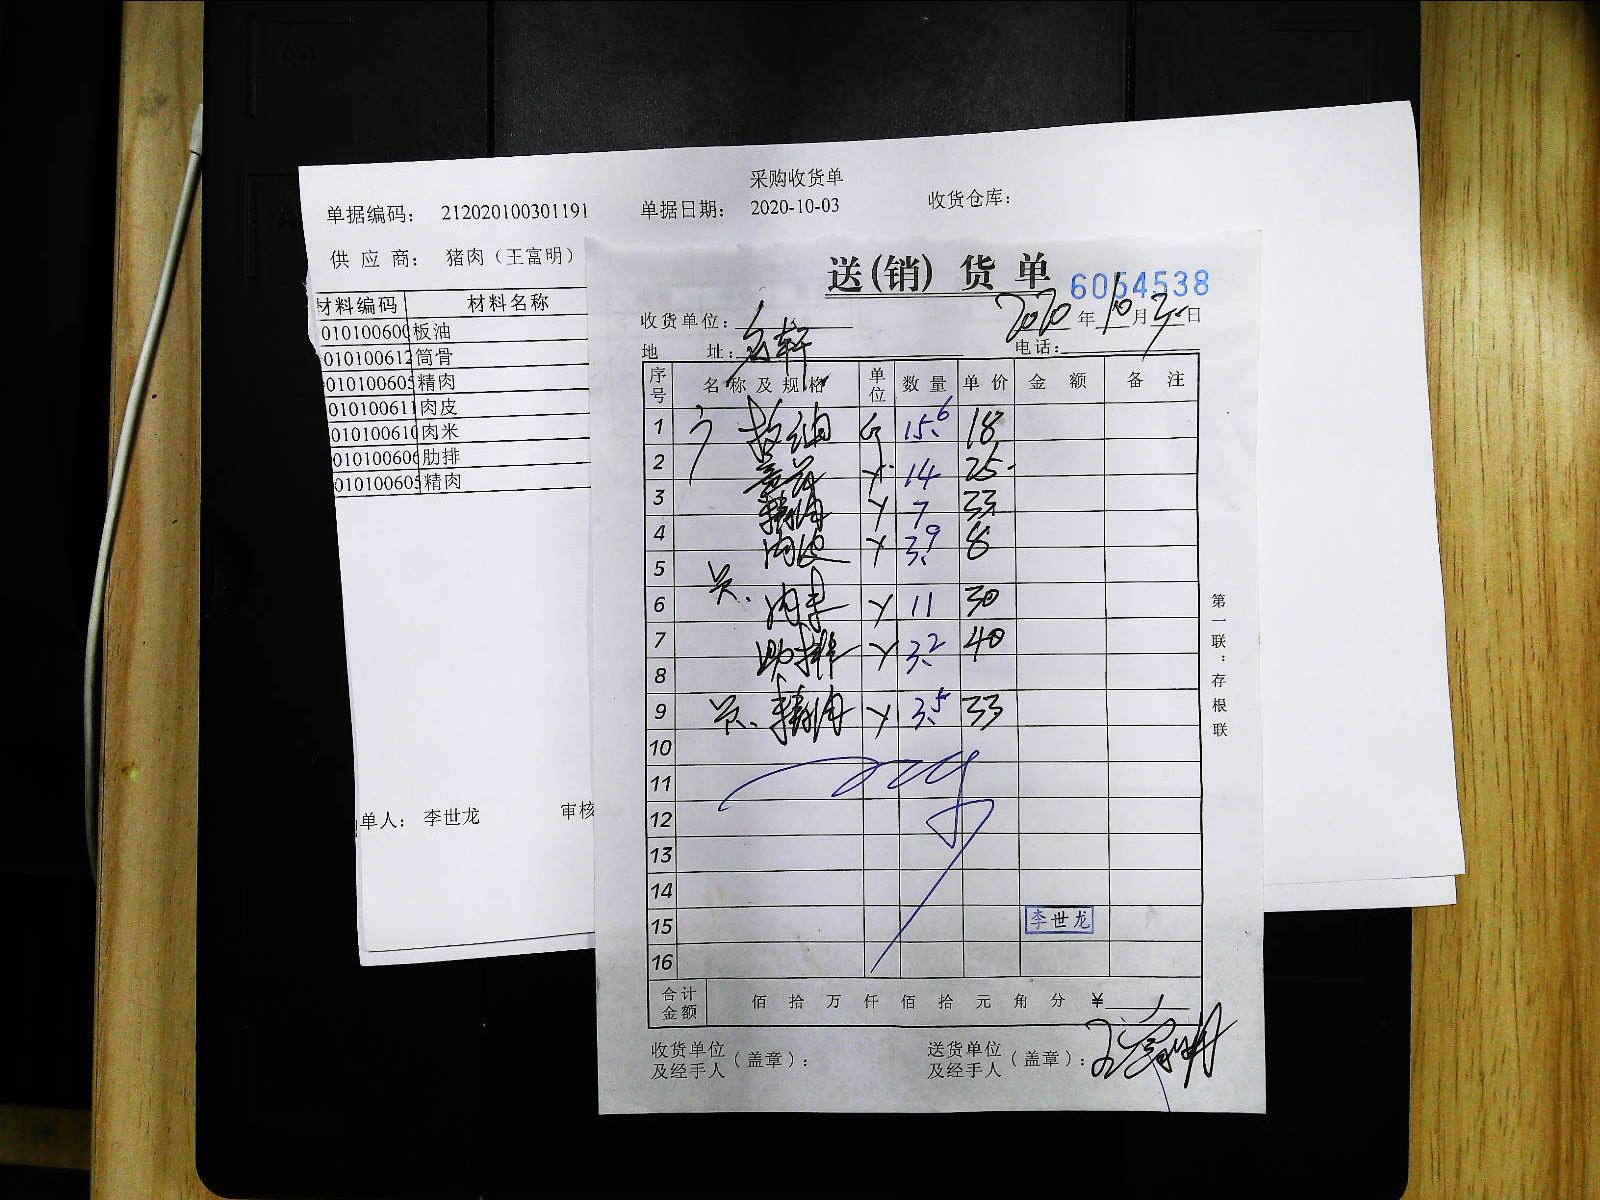 采购收货单
单据编码： 212020100301191 单据日期： 2020-10-03 收货仓库：
供 应 商： 猪肉（王富明）
材料编码 材料名称
010100600 板油
010100612 筒骨
010100605 精肉
010100611 肉皮
010100610 肉米
010100606 肋排
010100605 精肉
单人： 李世龙 审核
送（销）货 单
6054538
收货单位： 2020 年 10 月 3 日
地 址： 电话：
序号 名 称 及 规 格 单位 数 量 单 价 金 额 备 注
1 板油 15.6 18
2 14 25
3 精肉 7 33
4 肉皮 3.9 8
5
6 肉米 11 30
7 肋排 3.2 40
8
9 精肉 3.5 33
10
11
12
13
14
15 李世龙
16
合计金额 佰 拾 万 仟 佰 拾 元 角 分 ¥
收货单位及经手人（盖章）： 送货单位及经手人（盖章）： 王富明
第一联：存根联